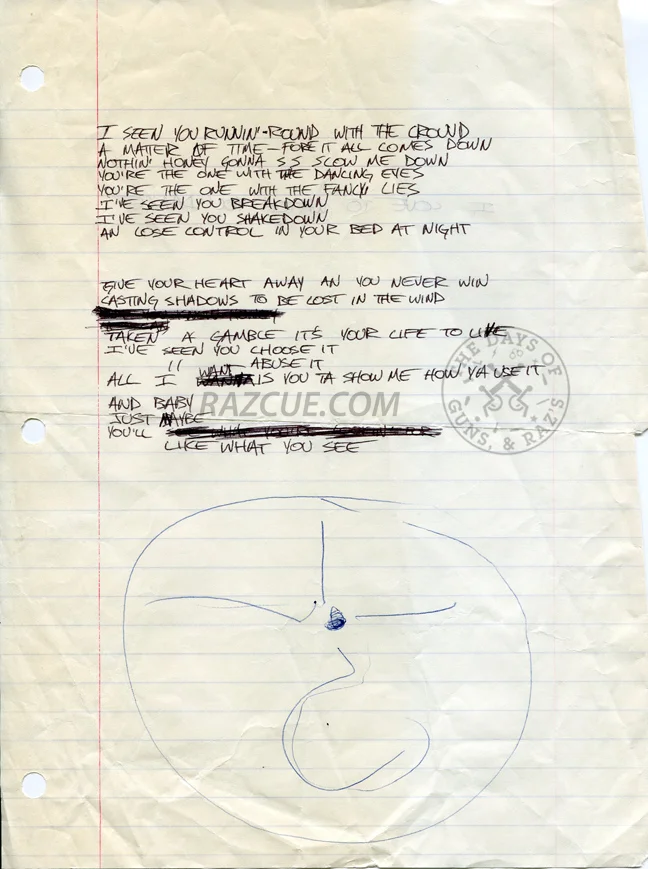 I SEEN YOU RUNNIN'-ROUND WITH THE CROUND
A MATTER OF TIME - FORE IT ALL COMES DOWN
NOTHIN' HONEY GONNA S S SLOW ME DOWN
YOU'RE THE ONE WITH THE DANCING EYES
YOU'RE THE ONE WITH THE FANCY LIES
I'VE SEEN YOU BREAKDOWN
I'VE SEEN YOU SHAKEDOWN
AN LOSE CONTROL IN YOUR BED AT NIGHT
GIVE YOUR HEART AWAY AN YOU NEVER WIN
CASTING SHADOWS TO BE LOST IN THE WIND
TAKEN' A GAMBLE IT'S YOUR LIFE TO LIVE
I'VE SEEN YOU CHOOSE IT
" ABUSE IT
ALL I WANT IS YOU TA SHOW ME HOW YA USE IT
AND BABY
JUST MAYBE
YOU'LL
LIKE WHAT YOU SEE
RAZCUE.COM
THE DAYS OF
GUNS, & RAZ'S